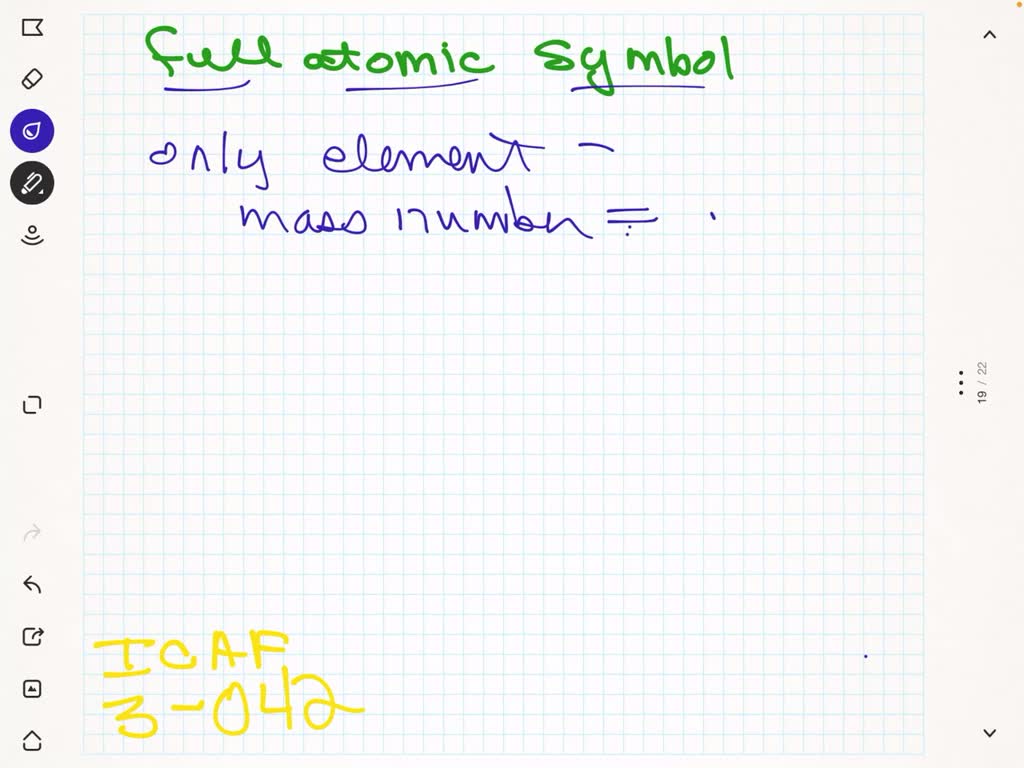 full atomic symbol
only element -
mass number =
ICAF
3-042
19 / 22